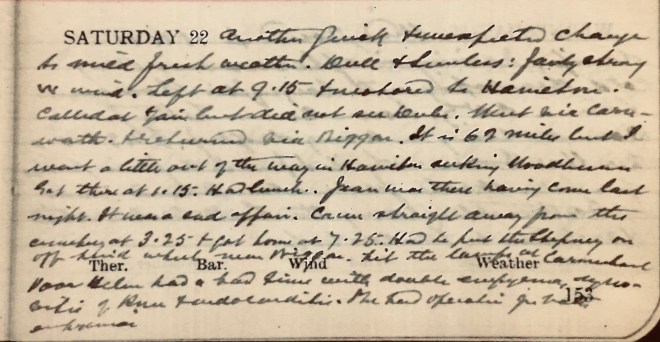 SATURDAY 22 Another quick & unexpected change
to mild fresh weather. Dull & sunless: fairly strong
W wind. Left at 9.15 & motored to Hamilton.
Called at but did not see. Went via Carn-
wath & returned via Biggar. It is 62 miles but I
went a little out of the way in Hamilton seeking
Got there at 1.15. Had lunch. Jean was there having come last
night. It was a sad affair. Came straight away from the
cemetery at 3.25 & got home at 7.25. Had to put the on
off hind wheel near Biggar. Lit the lamps at Carmichael
Ther. Bar. Wind Weather
Poor Helen had a bad time with double empyema,
of knee & endocarditis. She had operation for
153